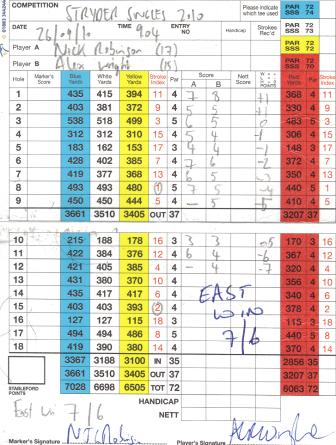 COMPETITION STRYDER SINGLES 2010 Please indicate which tee used PAR 72 SSS 74
DATE 26/09/10 TIME 904 ENTRY NO Handicap Strokes Rec'd PAR 72 SSS 73
Player A Nick Robinson (17) PAR 72
Player B Alex Wright (15) PAR 72
Hole Marker's Score Blue Yards White Yards Yellow Yards Stroke Index Par Score A B Nett Score POINTS Red Yards Par Stroke Index
1 435 415 394 11 4 7 8 +1 368 4 11
2 403 381 372 9 4 5 5 330 4 9
3 538 518 499 3 5 483 5 3
4 312 312 310 15 4 5 4 306 4 15
5 183 162 153 17 3 4 4 148 3 17
6 428 402 385 7 4 7 6 -2 372 4 7
7 419 377 368 13 4 350 4 13
8 493 493 480 1 5 7 5 -4 440 5 1
9 450 450 444 5 4 - 5 -5 410 4 5
3661 3510 3405 OUT 37 3207 37
10 215 188 178 16 3 3 3 170 3 16
11 422 384 376 12 4 6 4 -6 367 4 12
12 421 405 385 4 4 - 4 -7 320 4 4
13 431 380 370 10 4 356 4 10
14 435 417 417 6 4 EAST 340 4 6
15 403 403 393 2 4 WIN 378 4 2
16 127 127 115 18 3 7/6 115 3 18
17 494 494 486 8 5 440 5 8
18 419 390 380 14 4 370 4 14
3367 3188 3100 IN 35 2856 35
3661 3510 3405 OUT 37 3207 37
STABLEFORD POINTS 7028 6698 6505 TOT 72 6063 72
HANDICAP
East Win 7/6 NETT
Marker's Signature Player's Signature